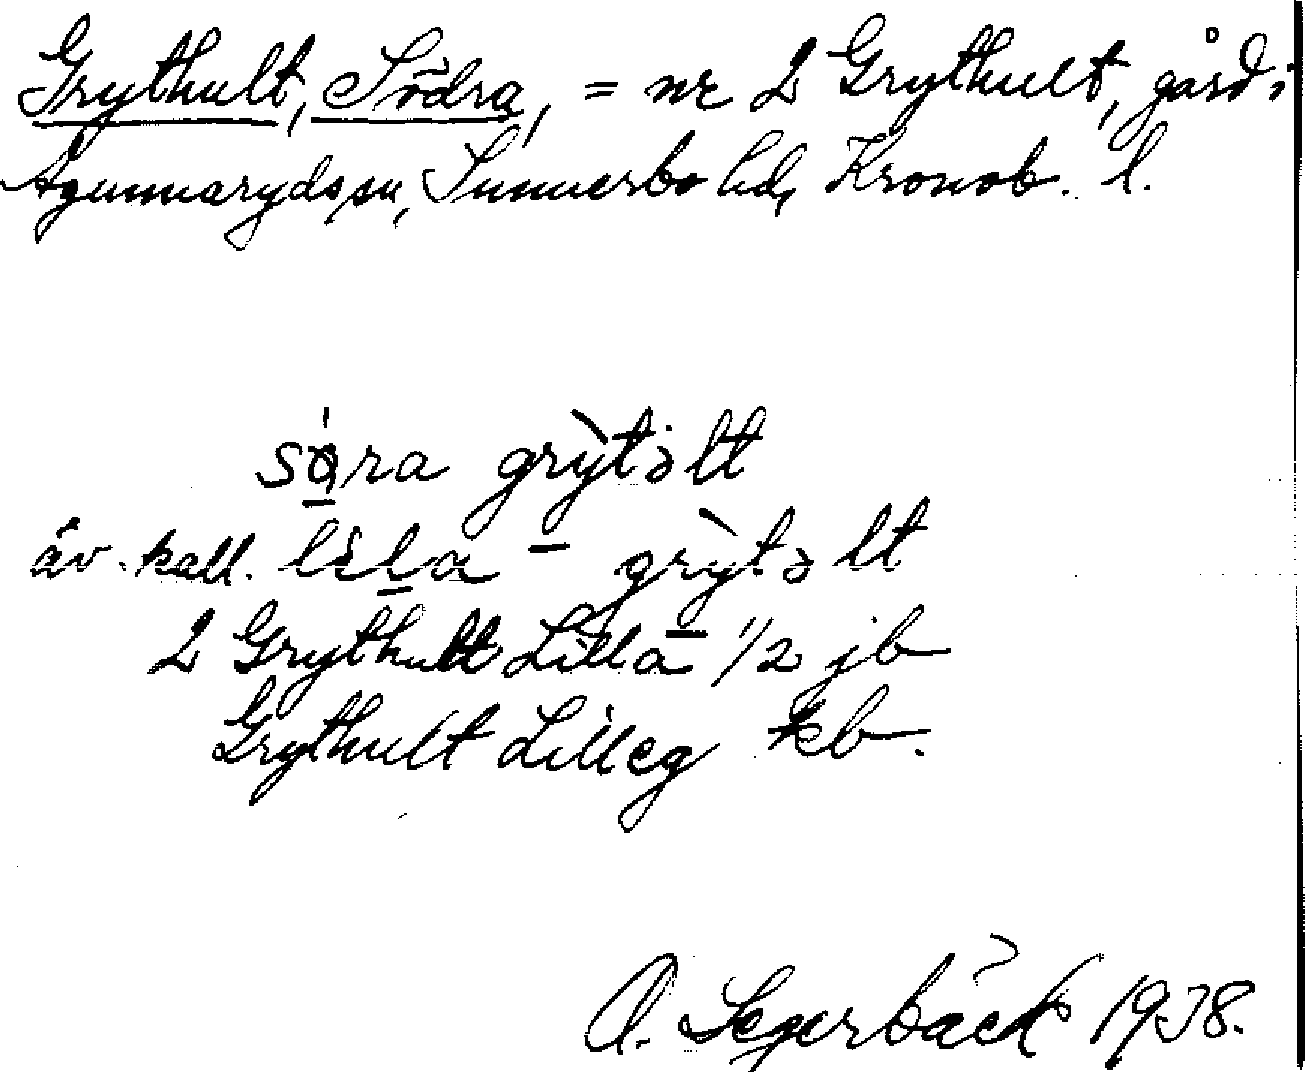 Grythult, Södra, = nr 2 Grythult, gård i
Agunnarydssn, Sunnerbo hd, Kronob. l.
søra grỳtəlt
äv. kall. lila grỳtəlt
2 Grythult Lilla 1/2 jb
Grythult Lilleg kb.
A. Segerbäck 1938.